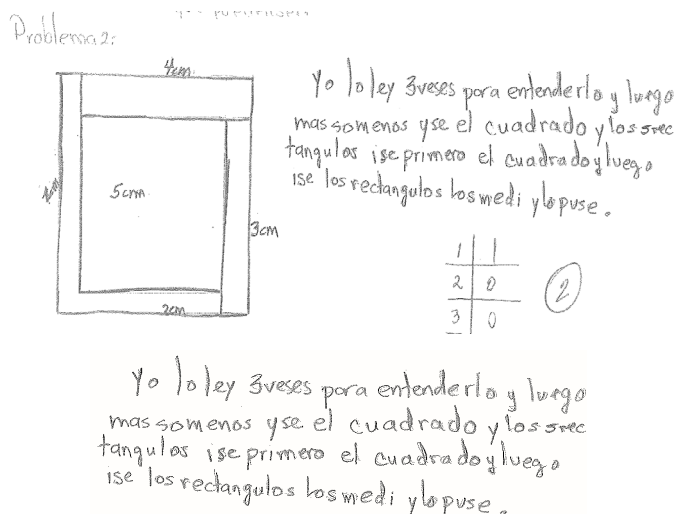 Problema 2:
4cm
Yo lo ley 3 veses para entenderlo y luego
mas somenos yse el cuadrado y los srec
tangulos ise primero el cuadrado y luego
ise los rectangulos los medi y lo puse.
5cm
3cm
2cm
1 1
2 0
3 0
2
Yo lo ley 3 veses para entenderlo y luego
mas somenos yse el cuadrado y los srec
tangulos ise primero el cuadrado y luego
ise los rectangulos los medi y lo puse.